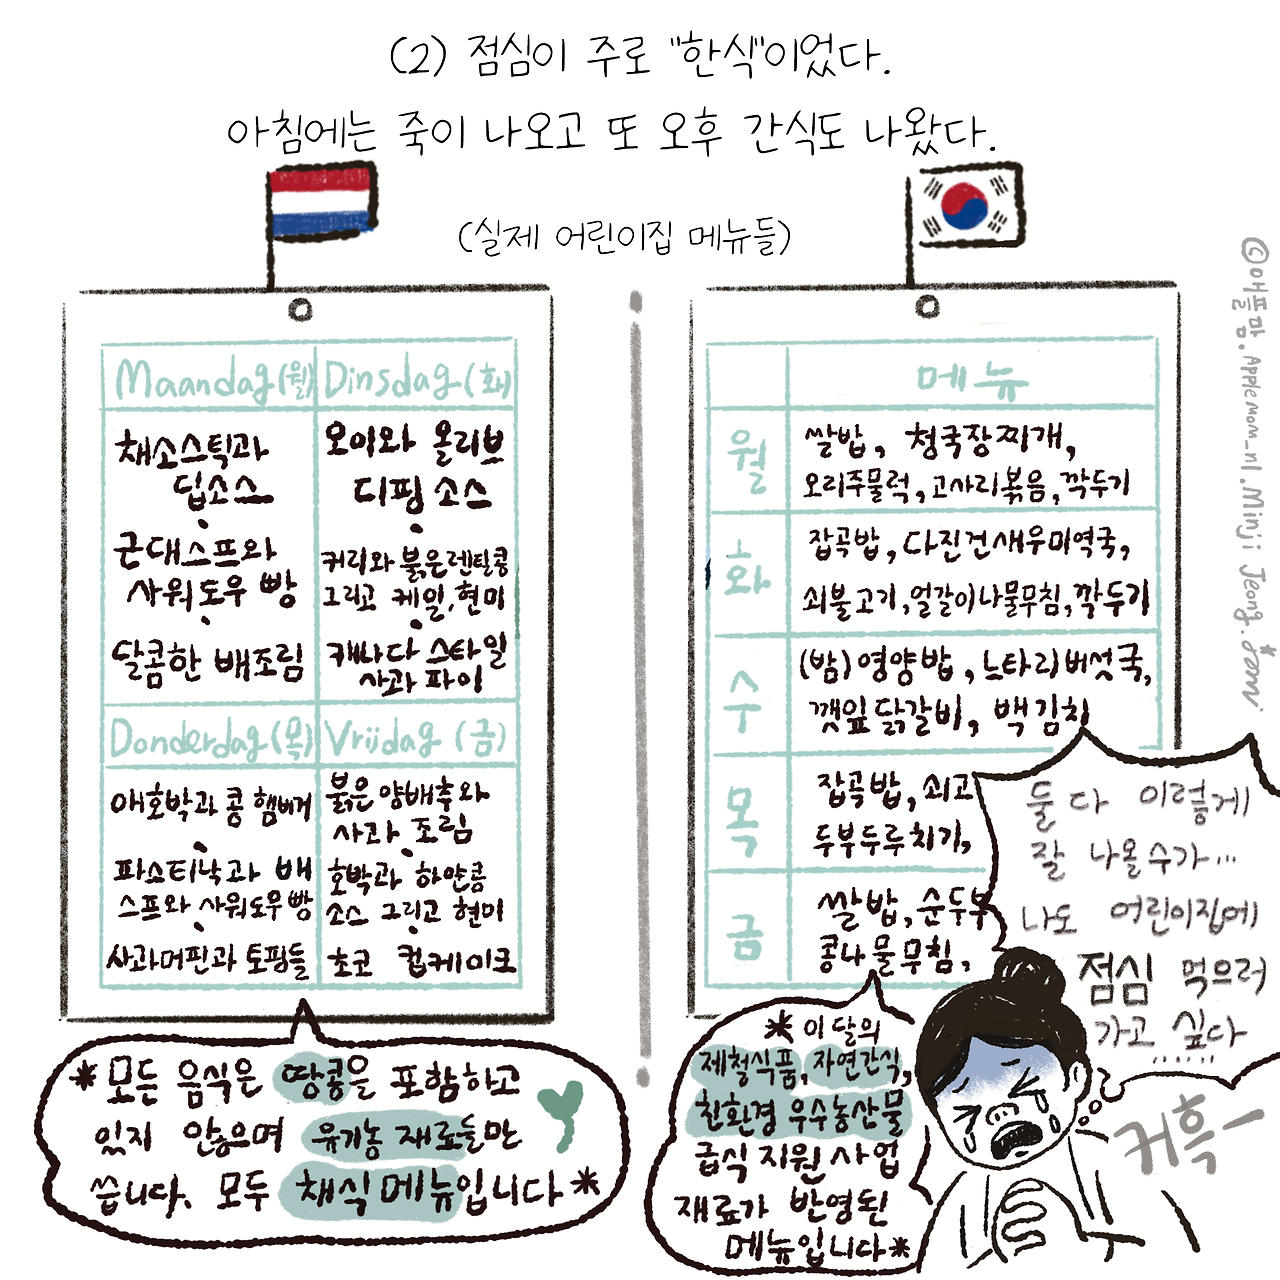 (2) 점심이 주로 "한식"이었다.
아침에는 죽이 나오고 또 오후 간식도 나왔다.
(실제 어린이집 메뉴들)
Maandag(월)
채소스틱과
딥소스
근대스프와
사워도우 빵
달콤한 배조림
Dinsdag(화)
오이와 올리브
디핑 소스
커리와 붉은렌틸콩
그리고 케일, 현미
캐나다 스타일
사과 파이
Donderdag(목)
애호박과 콩 햄버거
파스티낙과 배
스프와 사워도우빵
사과머핀과 토핑들
Vrijdag (금)
붉은 양배추와
사과 조림
호박과 하얀콩
소스 그리고 현미
초코 컵케이크
*모든 음식은 땅콩을 포함하고
있지 않으며 유기농 재료들만
씁니다. 모두 채식메뉴입니다*
메뉴
월
쌀밥, 청국장찌개,
오리주물럭, 고사리볶음, 깍두기
화
잡곡밥, 다진건새우미역국,
쇠불고기, 얼갈이나물무침, 깍두기
수
(밤)영양밥, 느타리버섯국,
깻잎닭갈비, 백김치
목
잡곡밥, 쇠고
두부두루치기,
금
쌀밥, 순두부
콩나물무침,
*이달의
제철식품, 자연간식,
친환경 우수농산물
급식 지원 사업
재료가 반영된
메뉴입니다*
둘 다 이렇게
잘 나올수가...
나도 어린이집에
점심 먹으러
가고 싶다
.......
커흑-
©애플맘.Applemom_nl.Minji Jeong.